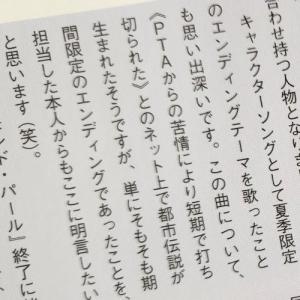 合わせ持つ人物となり
キャラクターソングとして夏季限定
のエンディングテーマを歌ったこと
も思い出深いです。この曲について、
《PTAからの苦情により短期で打ち
切られた》とのネット上で都市伝説が
生まれたそうですが、単にそもそも期
間限定のエンディングであったことを、
担当した本人からもここに明言したい
と思います（笑）。
ンド・パール』終了に